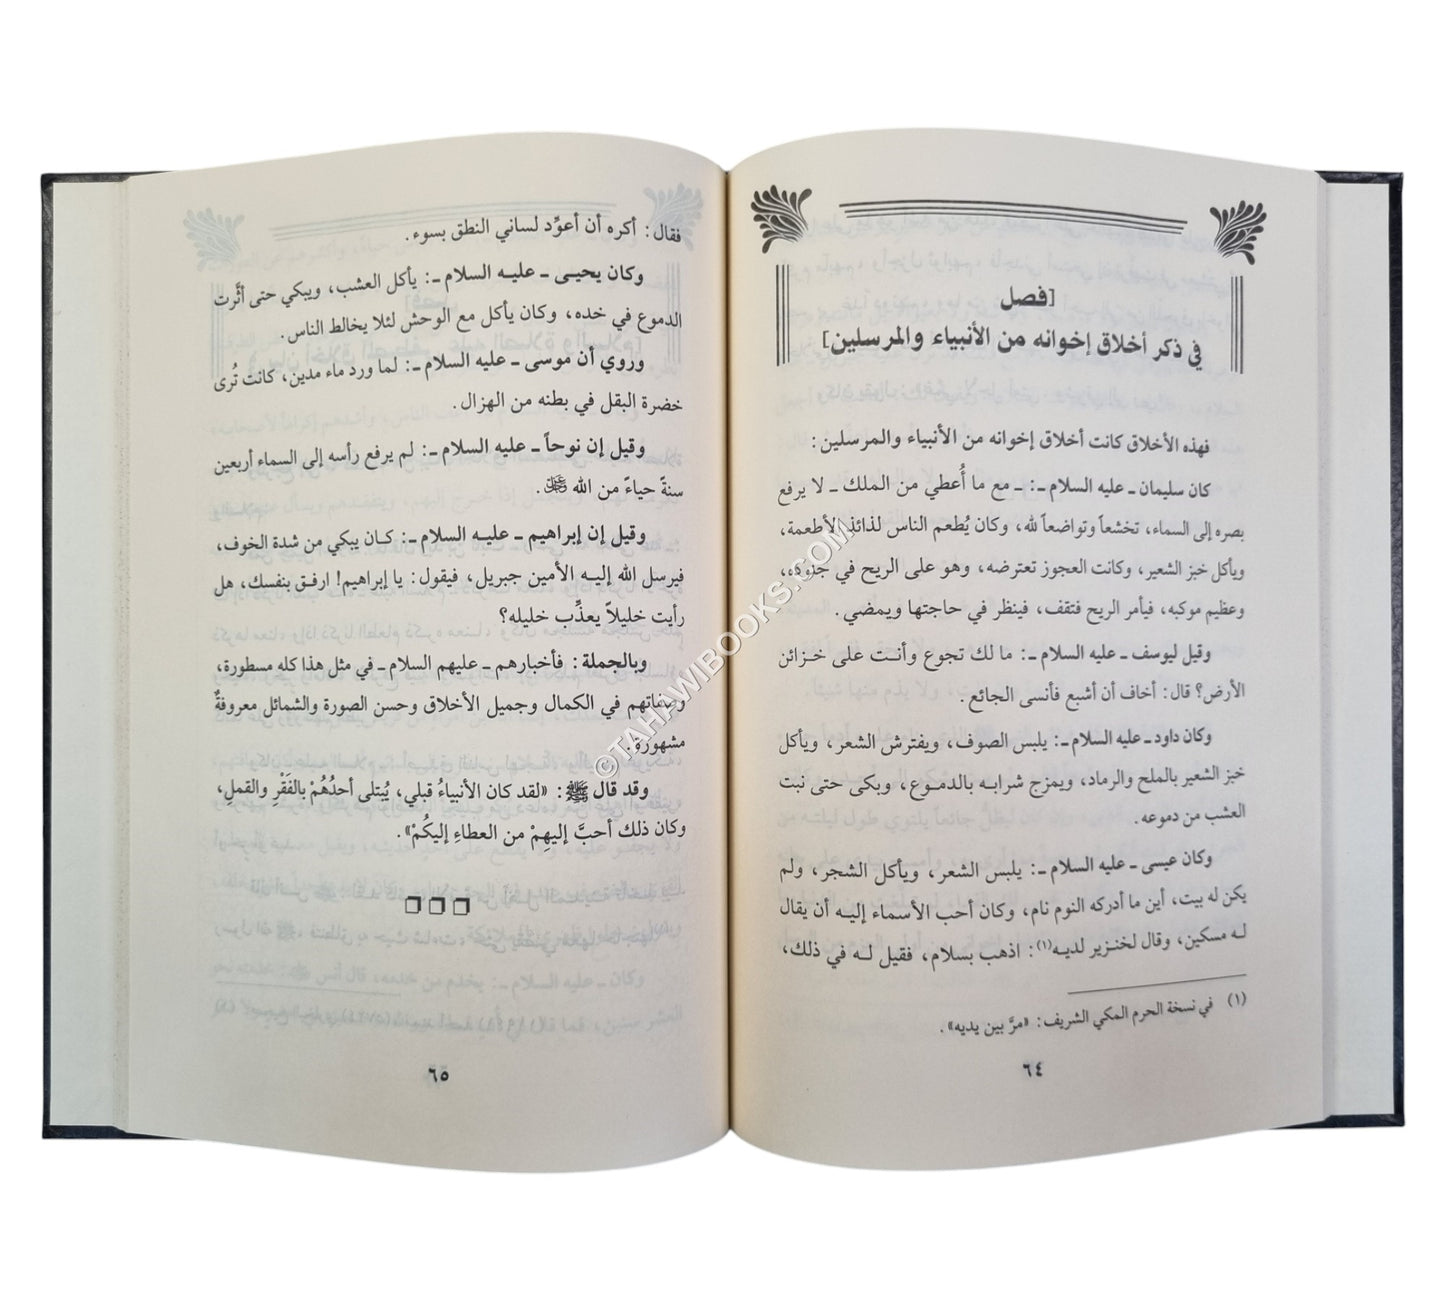 [فصل
في ذكر أخلاق إخوانه من الأنبياء والمرسلين]
فهذه الأخلاق كانت أخلاق إخوانه من الأنبياء والمرسلين:
كان سليمان ـ عليه السلام ـ: ـ مع ما أُعطي من الملك ـ لا يرفع
بصره إلى السماء، تخشعاً وتواضعاً لله، وكان يُطعم الناس لذائذ الأطعمة،
ويأكل خبز الشعير، وكانت العجوز تعترضه، وهو على الريح في جنوده،
وعظيم موكبه، فيأمر الريح فتقف، فينظر في حاجتها ويمضي.
وقيل ليوسف ـ عليه السلام ـ: ما لك تجوع وأنت على خزائن
الأرض؟ قال: أخاف أن أشبع فأنسى الجائع.
وكان داود ـ عليه السلام ـ: يلبس الصوف، ويفترش الشعر، ويأكل
خبز الشعير بالملح والرماد، ويمزج شرابه بالدموع، وبكى حتى نبت
العشب من دموعه.
وكان عيسى ـ عليه السلام ـ: يلبس الشعر، ويأكل الشجر، ولم
يكن له بيت، أين ما أدركه النوم نام، وكان أحب الأسماء إليه أن يقال
له مسكين، وقال لخنزير لديه(١): اذهب بسلام، فقيل له في ذلك،
(١) في نسخة الحرم المكي الشريف: «مرَّ بين يديه».
٦٤
فقال: أكره أن أعوِّد لساني النطق بسوء.
وكان يحيى ـ عليه السلام ـ: يأكل العشب، ويبكي حتى أثَّرت
الدموع في خده، وكان يأكل مع الوحش لئلا يخالط الناس.
وروي أن موسى ـ عليه السلام ـ: لما ورد ماء مدين، كانت تُرى
خضرة البقل في بطنه من الهزال.
وقيل إن نوحاً ـ عليه السلام ـ: لم يرفع رأسه إلى السماء أربعين
سنةً حياءً من الله ﷿.
وقيل إن إبراهيم ـ عليه السلام ـ: كان يبكي من شدة الخوف،
فيرسل الله إليه الأمين جبريل، فيقول: يا إبراهيم! ارفق بنفسك، هل
رأيت خليلاً يعذِّب خليله؟
وبالجملة: فأخبارهم ـ عليهم السلام ـ في مثل هذا كله مسطورة،
وصفاتهم في الكمال وجميل الأخلاق وحسن الصورة والشمائل معروفةٌ
مشهورة.
وقد قال ﷺ: «لقد كان الأنبياءُ قبلي، يُبتلى أحدُهُمْ بالفَقْرِ والقملِ،
وكان ذلك أحبَّ إليهِمْ من العطاءِ إليكُمْ».
٦٥
©TAHAWIBOOKS.COM